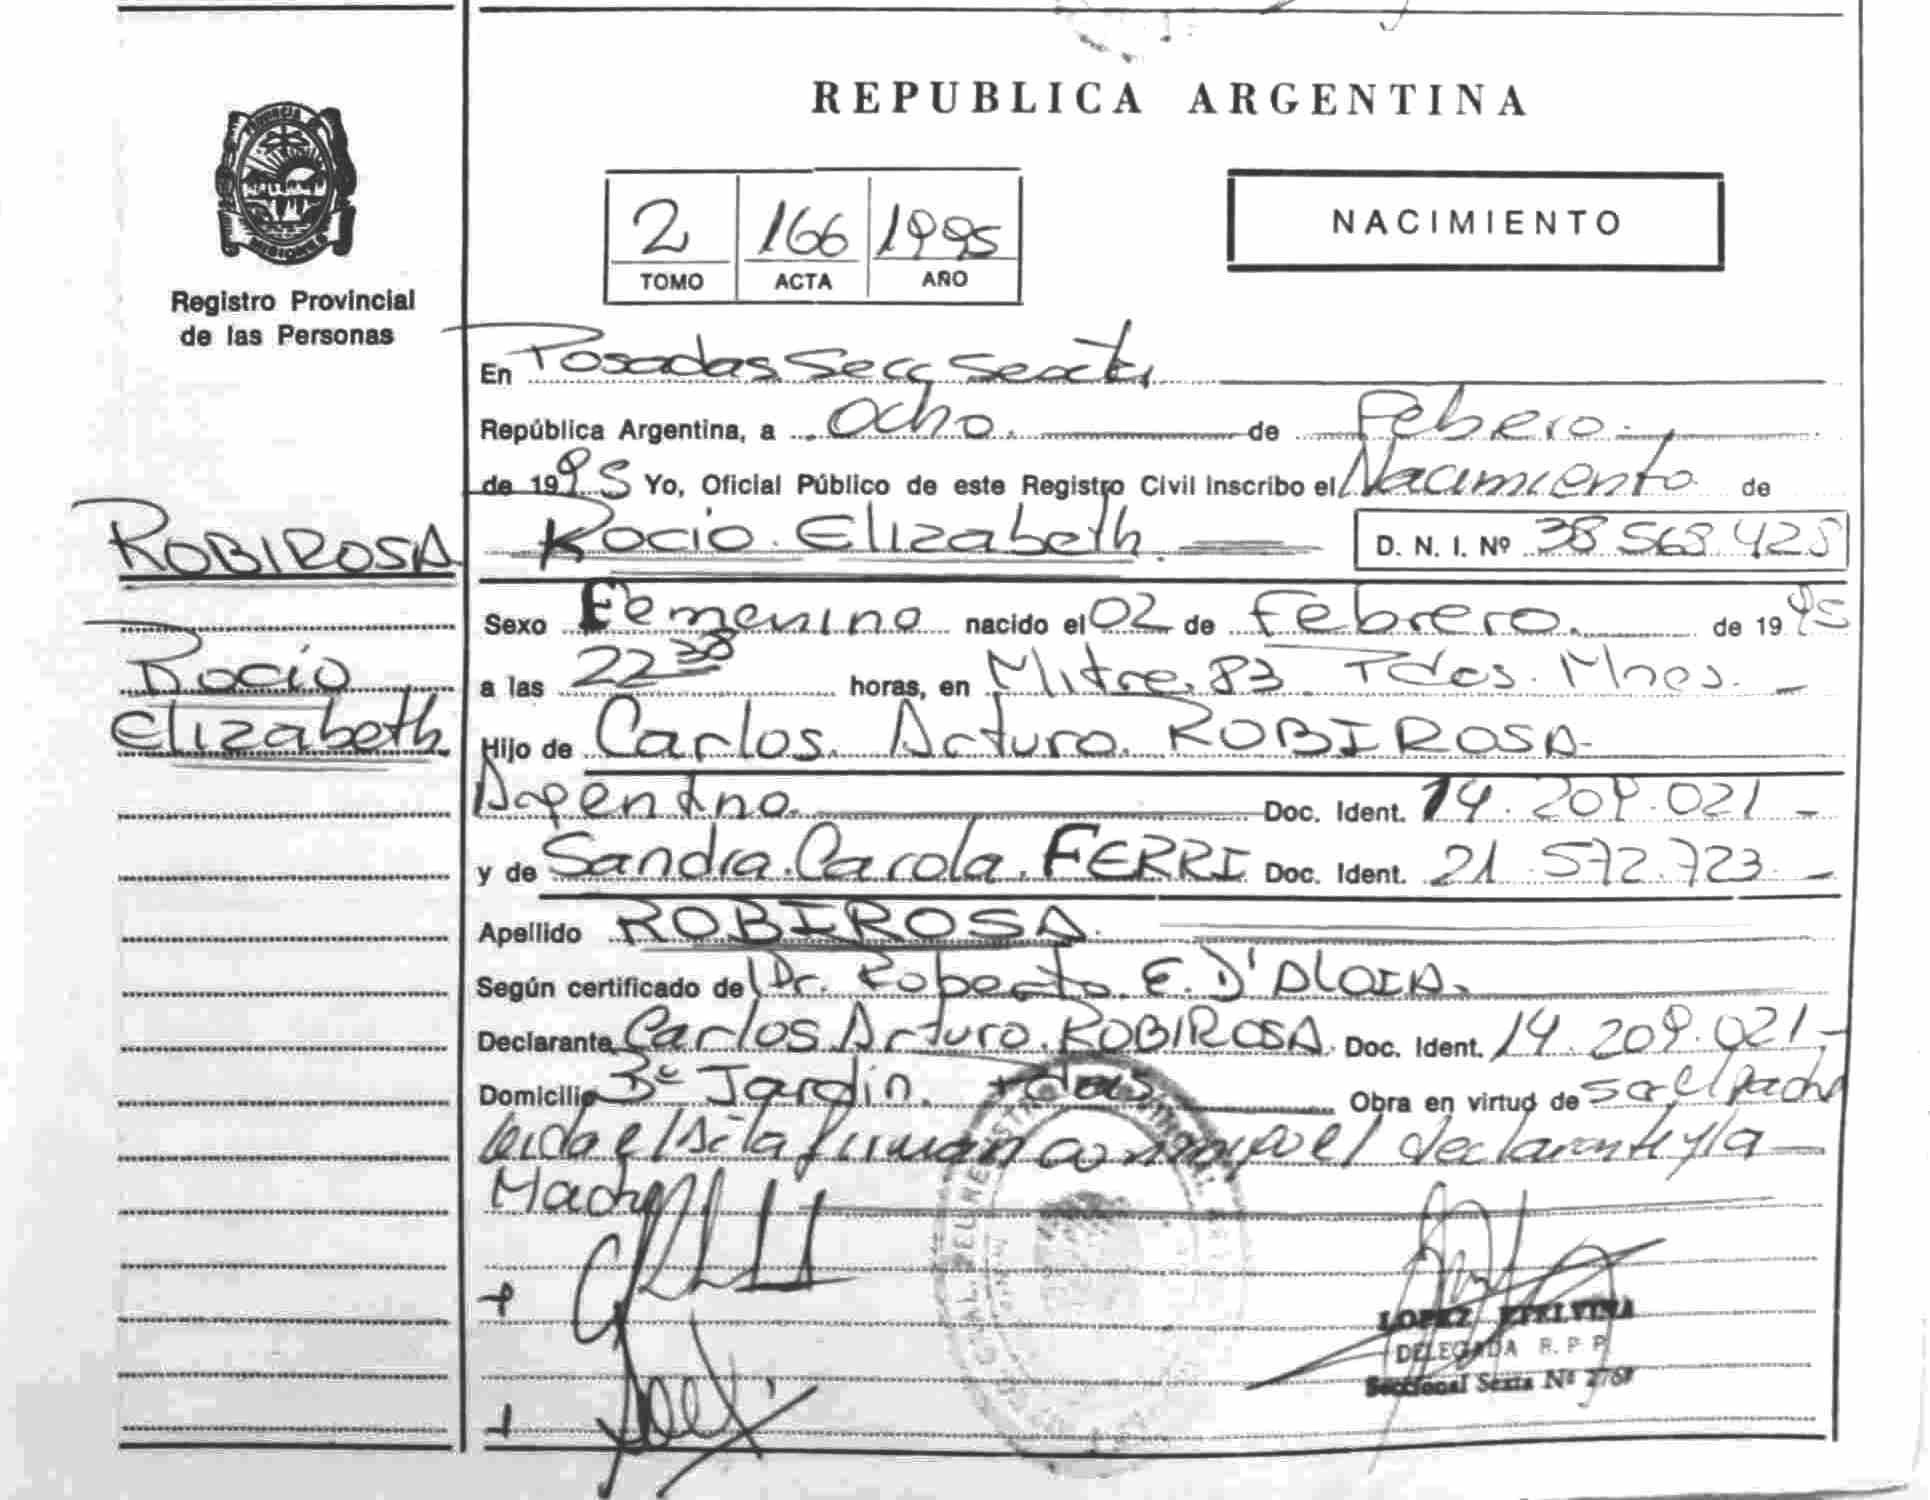 REPUBLICA ARGENTINA
PROVINCIA DE
MISIONES
Registro Provincial
de las Personas
2 166 1995
TOMO ACTA AÑO
NACIMIENTO
En Posadas Secc Sexta
República Argentina, a ocho de Febero
de 1995 Yo, Oficial Público de este Registro Civil inscribo el Nacimiento de
ROBIROSA
Rocio Elizabeth
Rocio Elizabeth. D. N. I. Nº 38.568.428
Sexo Femenino nacido el 02 de Febrero. de 1995
a las 22 38 horas, en Mitre 83 Pdas. Mnes.
Hijo de Carlos Arturo ROBIROSA
Argentino Doc. Ident. 14.209.021
y de Sandra Carola FERRI Doc. Ident. 21.572.723
Apellido ROBIROSA
Según certificado de Dr. Roberto E. D'ALOIA
Declarante Carlos Arturo ROBIROSA Doc. Ident. 14.209.021
Domicilio 3º Jardin Pdas Obra en virtud de ser el padre
leida el acta firman conmigo el declarante y la
Madre
LOPEZ ETELVINA
DELEGADA R. P. P.
Seccional Sexta Nº 2768